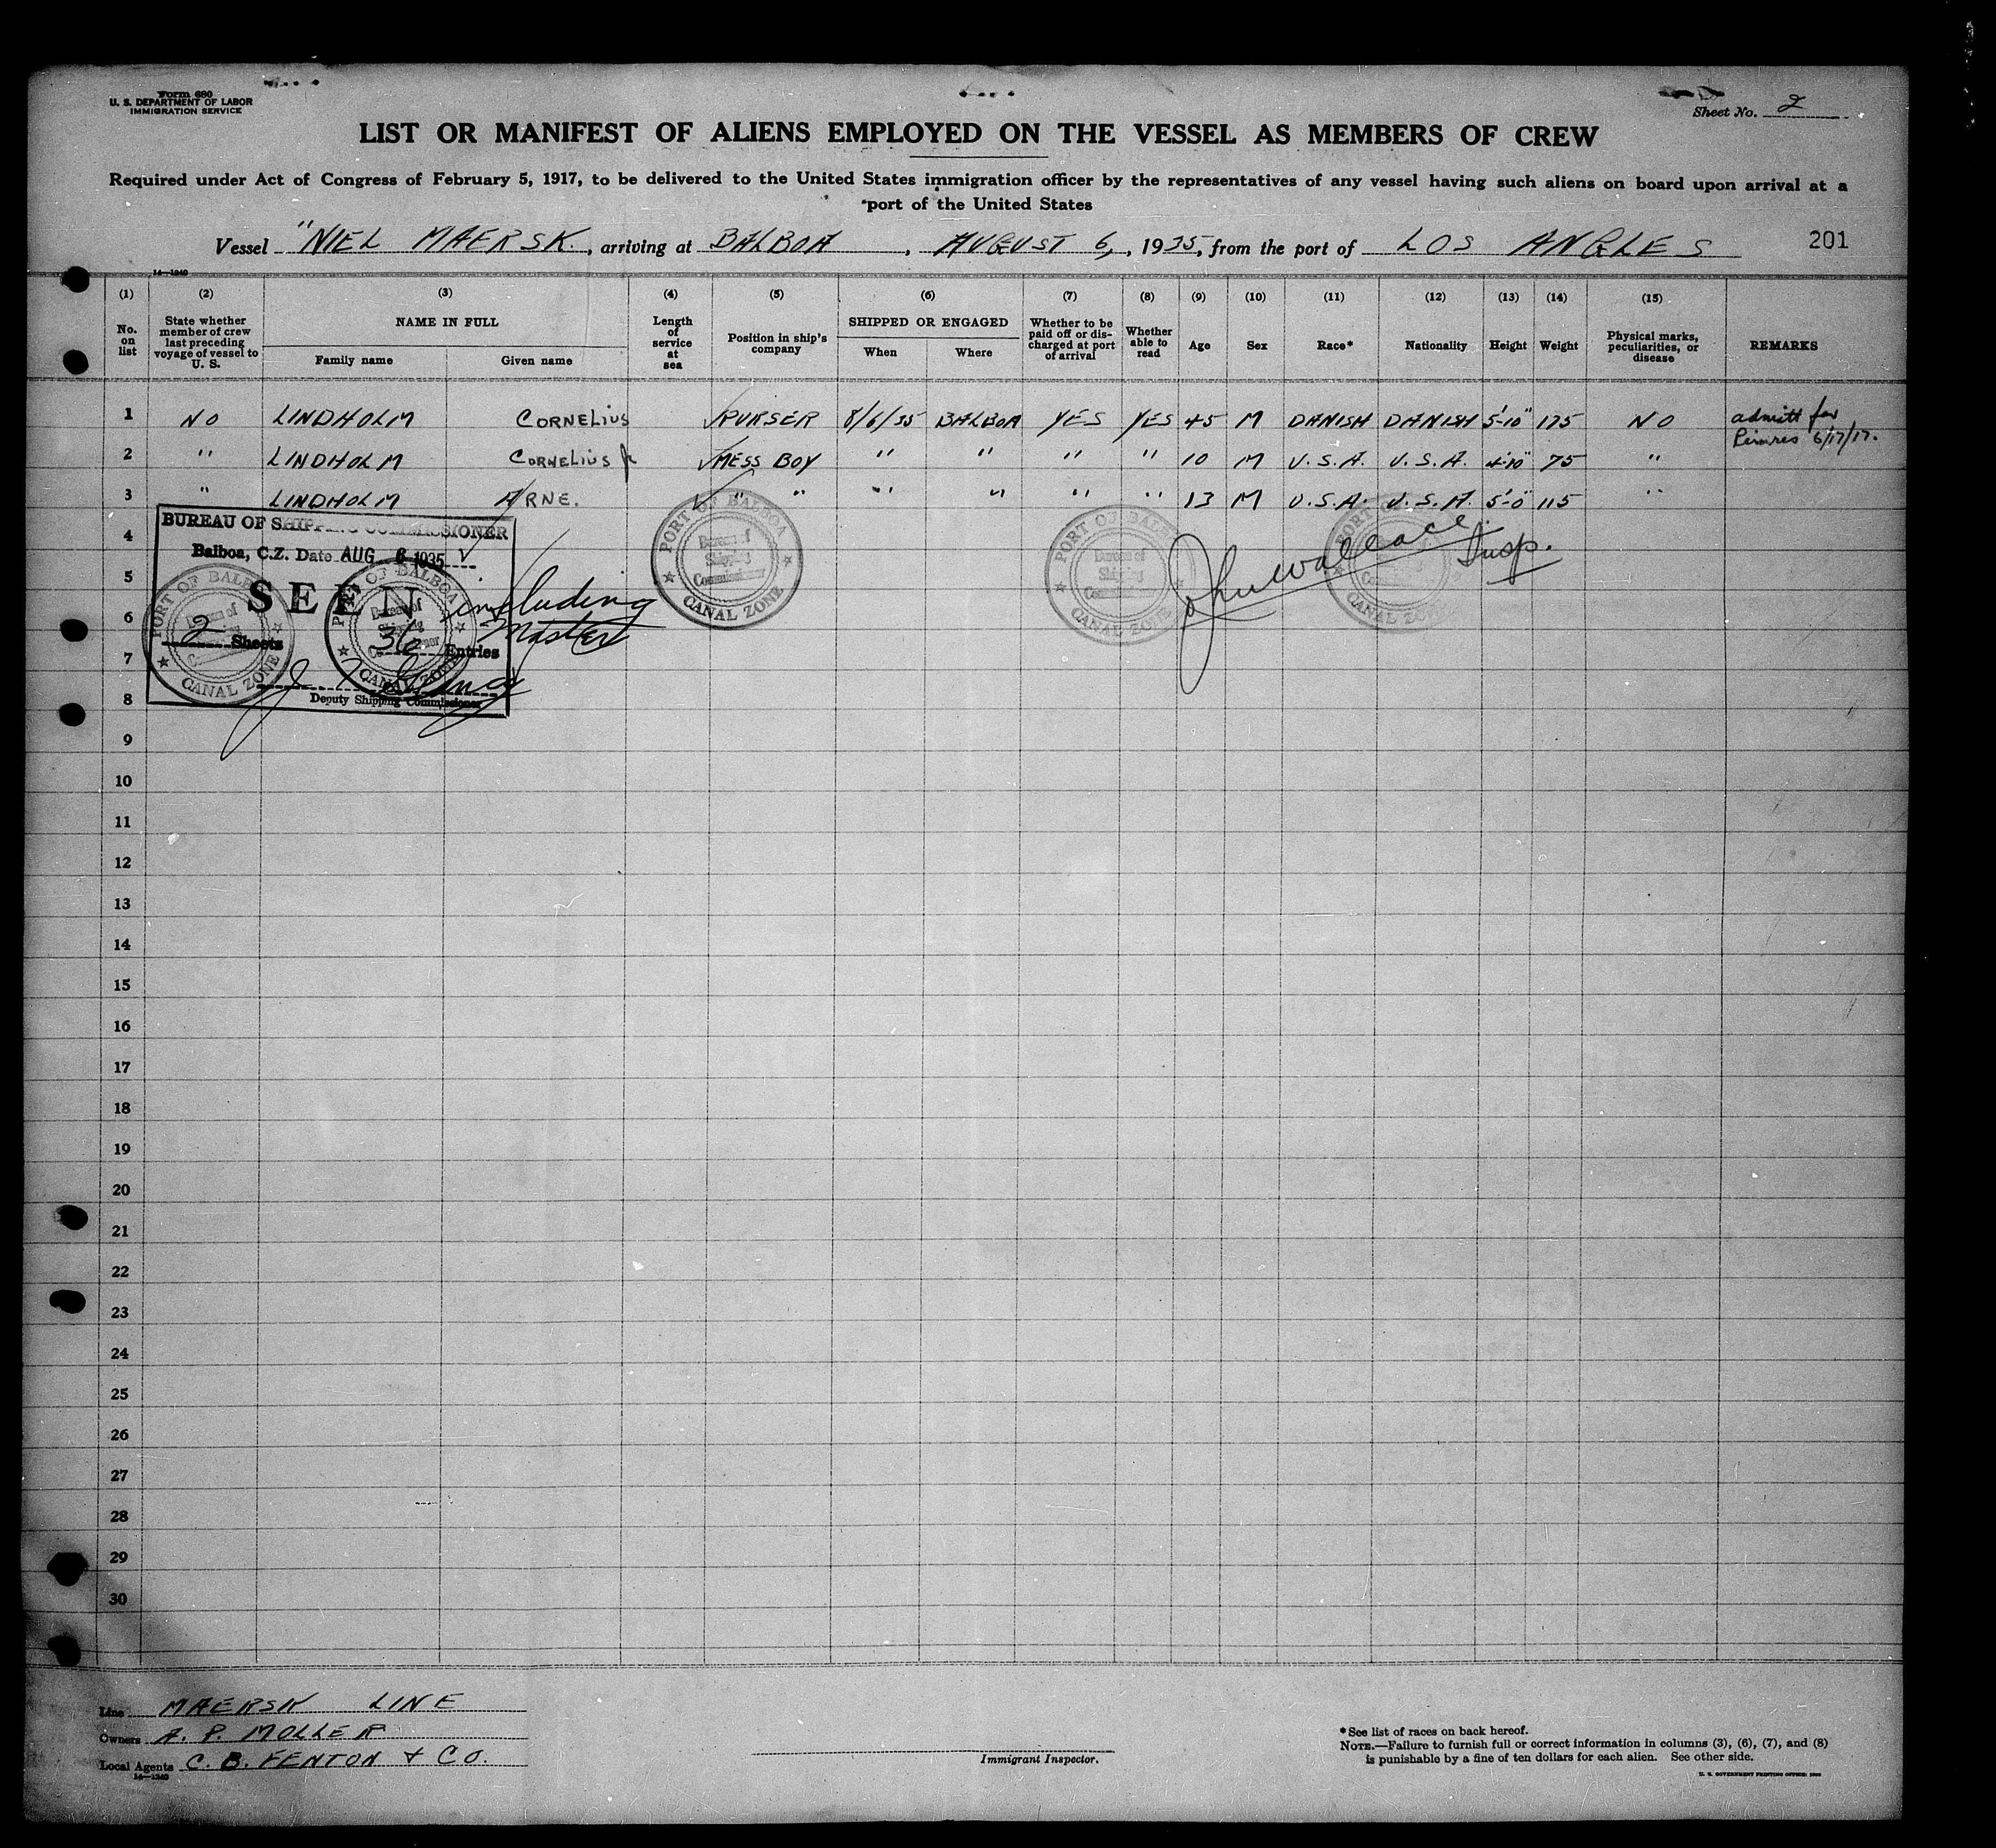 Form 680
U. S. DEPARTMENT OF LABOR
IMMIGRATION SERVICE
Sheet No. 2
LIST OR MANIFEST OF ALIENS EMPLOYED ON THE VESSEL AS MEMBERS OF CREW
Required under Act of Congress of February 5, 1917, to be delivered to the United States immigration officer by the representatives of any vessel having such aliens on board upon arrival at a
port of the United States
Vessel "NIEL MAERSK, arriving at BALBOA, AUGUST 6, 1935, from the port of LOS ANGLES 201
14—1240
(1) (2) (3) (4) (5) (6) (7) (8) (9) (10) (11) (12) (13) (14) (15)
No. on list State whether member of crew last preceding voyage of vessel to U. S. NAME IN FULL Family name Given name Length of service at sea Position in ship's company SHIPPED OR ENGAGED When Where Whether to be paid off or discharged at port of arrival Whether able to read Age Sex Race* Nationality Height Weight Physical marks, peculiarities, or disease REMARKS
1 NO LINDHOLM CORNELIUS PURSER 8/6/35 BALBOA YES YES 45 M DANISH DANISH 5'-10" 175 NO admitt for
6/17/17.
2 " LINDHOLM CORNELIUS Jr MESS BOY " " " " 10 M U.S.A. U.S.A. 4'-10" 75 "
3 " LINDHOLM ARNE. " " " " " " 13 M U.S.A. U.S.A. 5'-0" 115 "
BUREAU OF SHIPPING COMMISSIONER
Balboa, C.Z. Date AUG 6 1935
SEEN
2 Sheets 36 Entries
including
Master
Deputy Shipping Commissioner
PORT OF BALBOA
Bureau of
Shipping
Commissioner
CANAL ZONE
PORT OF BALBOA
Bureau of
Shipping
Commissioner
CANAL ZONE
PORT OF BALBOA
Bureau of
Shipping
Commissioner
CANAL ZONE
PORT OF BALBOA
Bureau of
Shipping
Commissioner
CANAL ZONE
PORT OF
CANAL ZONE
Jhnwallace Insp.
4
5
6
7
8
9
10
11
12
13
14
15
16
17
18
19
20
21
22
23
24
25
26
27
28
29
30
Line MAERSK LINE
Owners A. P. MOLLER
Local Agents C. B. FENTON & CO.
14—1240
Immigrant Inspector.
*See list of races on back hereof.
NOTE.—Failure to furnish full or correct information in columns (3), (6), (7), and (8)
is punishable by a fine of ten dollars for each alien. See other side.
U. S. GOVERNMENT PRINTING OFFICE: